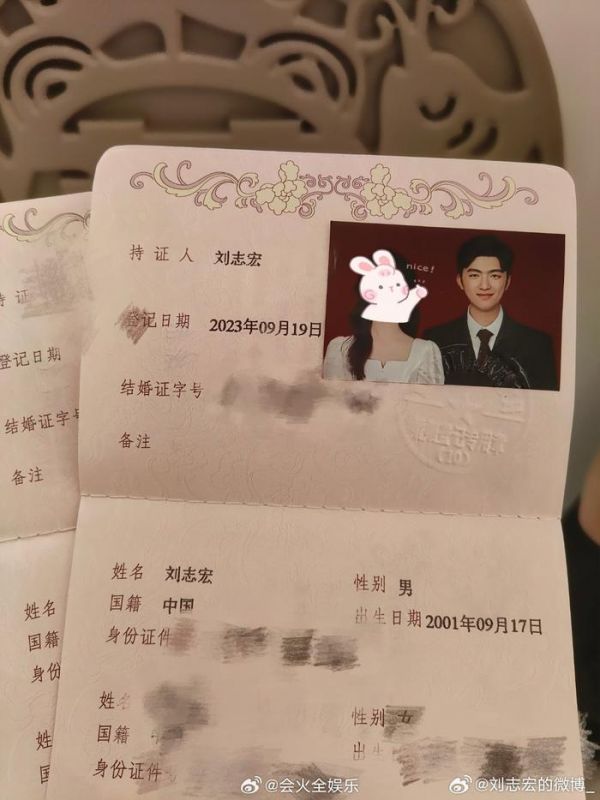 持证人 刘志宏
nice!
登记日期 2023年09月19日
结婚证字号
备注
姓名 刘志宏 性别 男
国籍 中国 出生日期 2001年09月17日
身份证件
姓名 性别 女
国籍 出生
身份证件
持证
登记日期
结婚证字号
备注
姓名
国籍
身份
姓
国
@会火全娱乐
@刘志宏的微博_